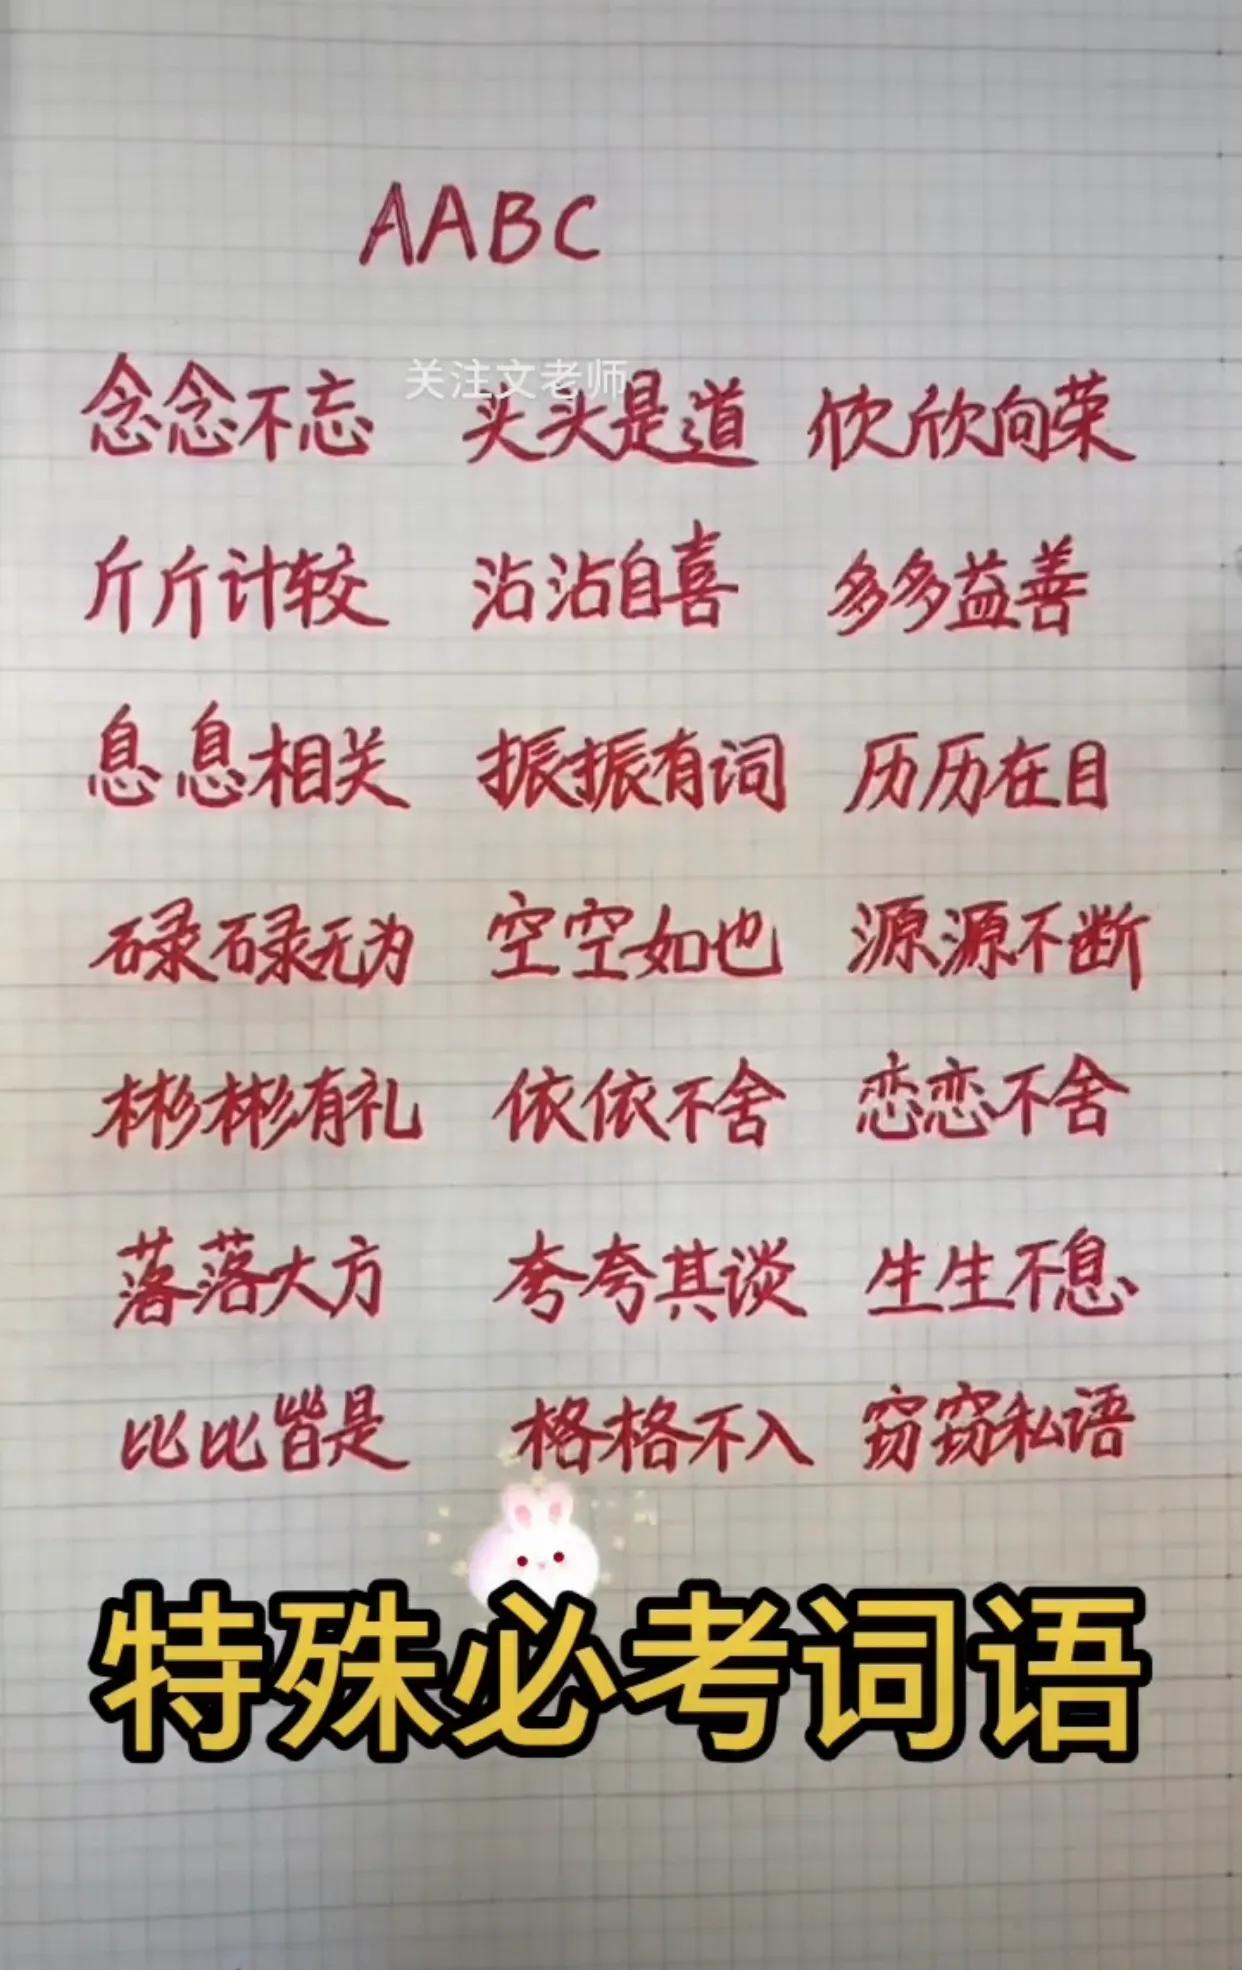 AABC
关注文老师
念念不忘 头头是道 欣欣向荣
斤斤计较 沾沾自喜 多多益善
息息相关 振振有词 历历在目
碌碌无为 空空如也 源源不断
彬彬有礼 依依不舍 恋恋不舍
落落大方 夸夸其谈 生生不息
比比皆是 格格不入 窃窃私语
特殊必考词语